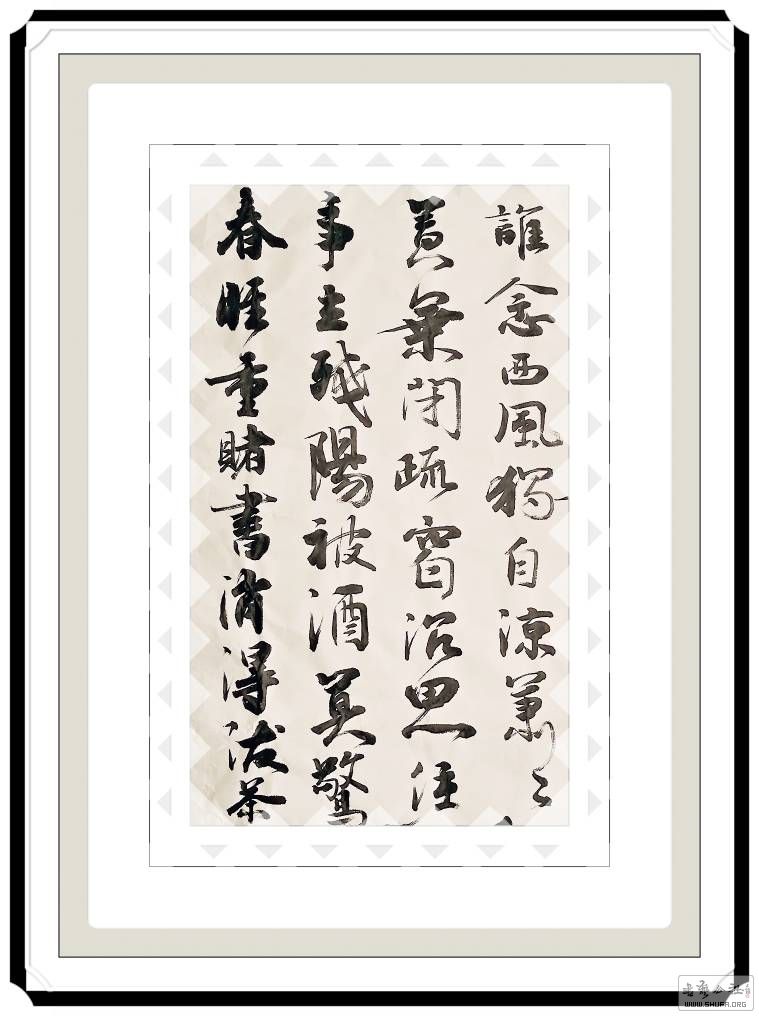 誰念西風獨自涼蕭〻
黃葉閉疏窗沉思往
事立殘陽被酒莫驚
春睡重賭書消得泼茶
書藝公社
WWW.SHUFA.ORG